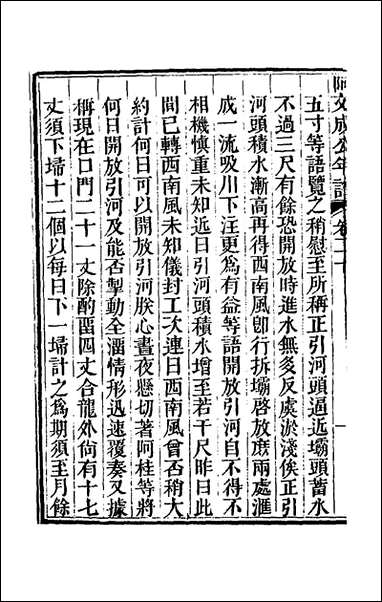 阿文成公年譜 卷二十
五寸等語覽之稍慰至所稱正引河頭逼近壩頭蓄水
不過三尺有餘恐開放時進水無多反虞淤淺俟正引
河頭積水漸高再得西南風卽行拆壩啓放庶兩處滙
成一流吸川下注更爲有益等語開放引河自不得不
相機慎重未知近日引河頭積水增至若干尺昨日此
間已轉西南風未知儀封工次連日西南風曾否稍大
約計何日可以開放引河朕心晝夜懸切著阿桂等將
何日開放引河及能否掣動全溜情形迅速覆奏又據
稱現在口門二十一丈除酌畱四丈合龍外尙有十七
丈須下埽十二個以每日下一埽計之爲期須至月餘